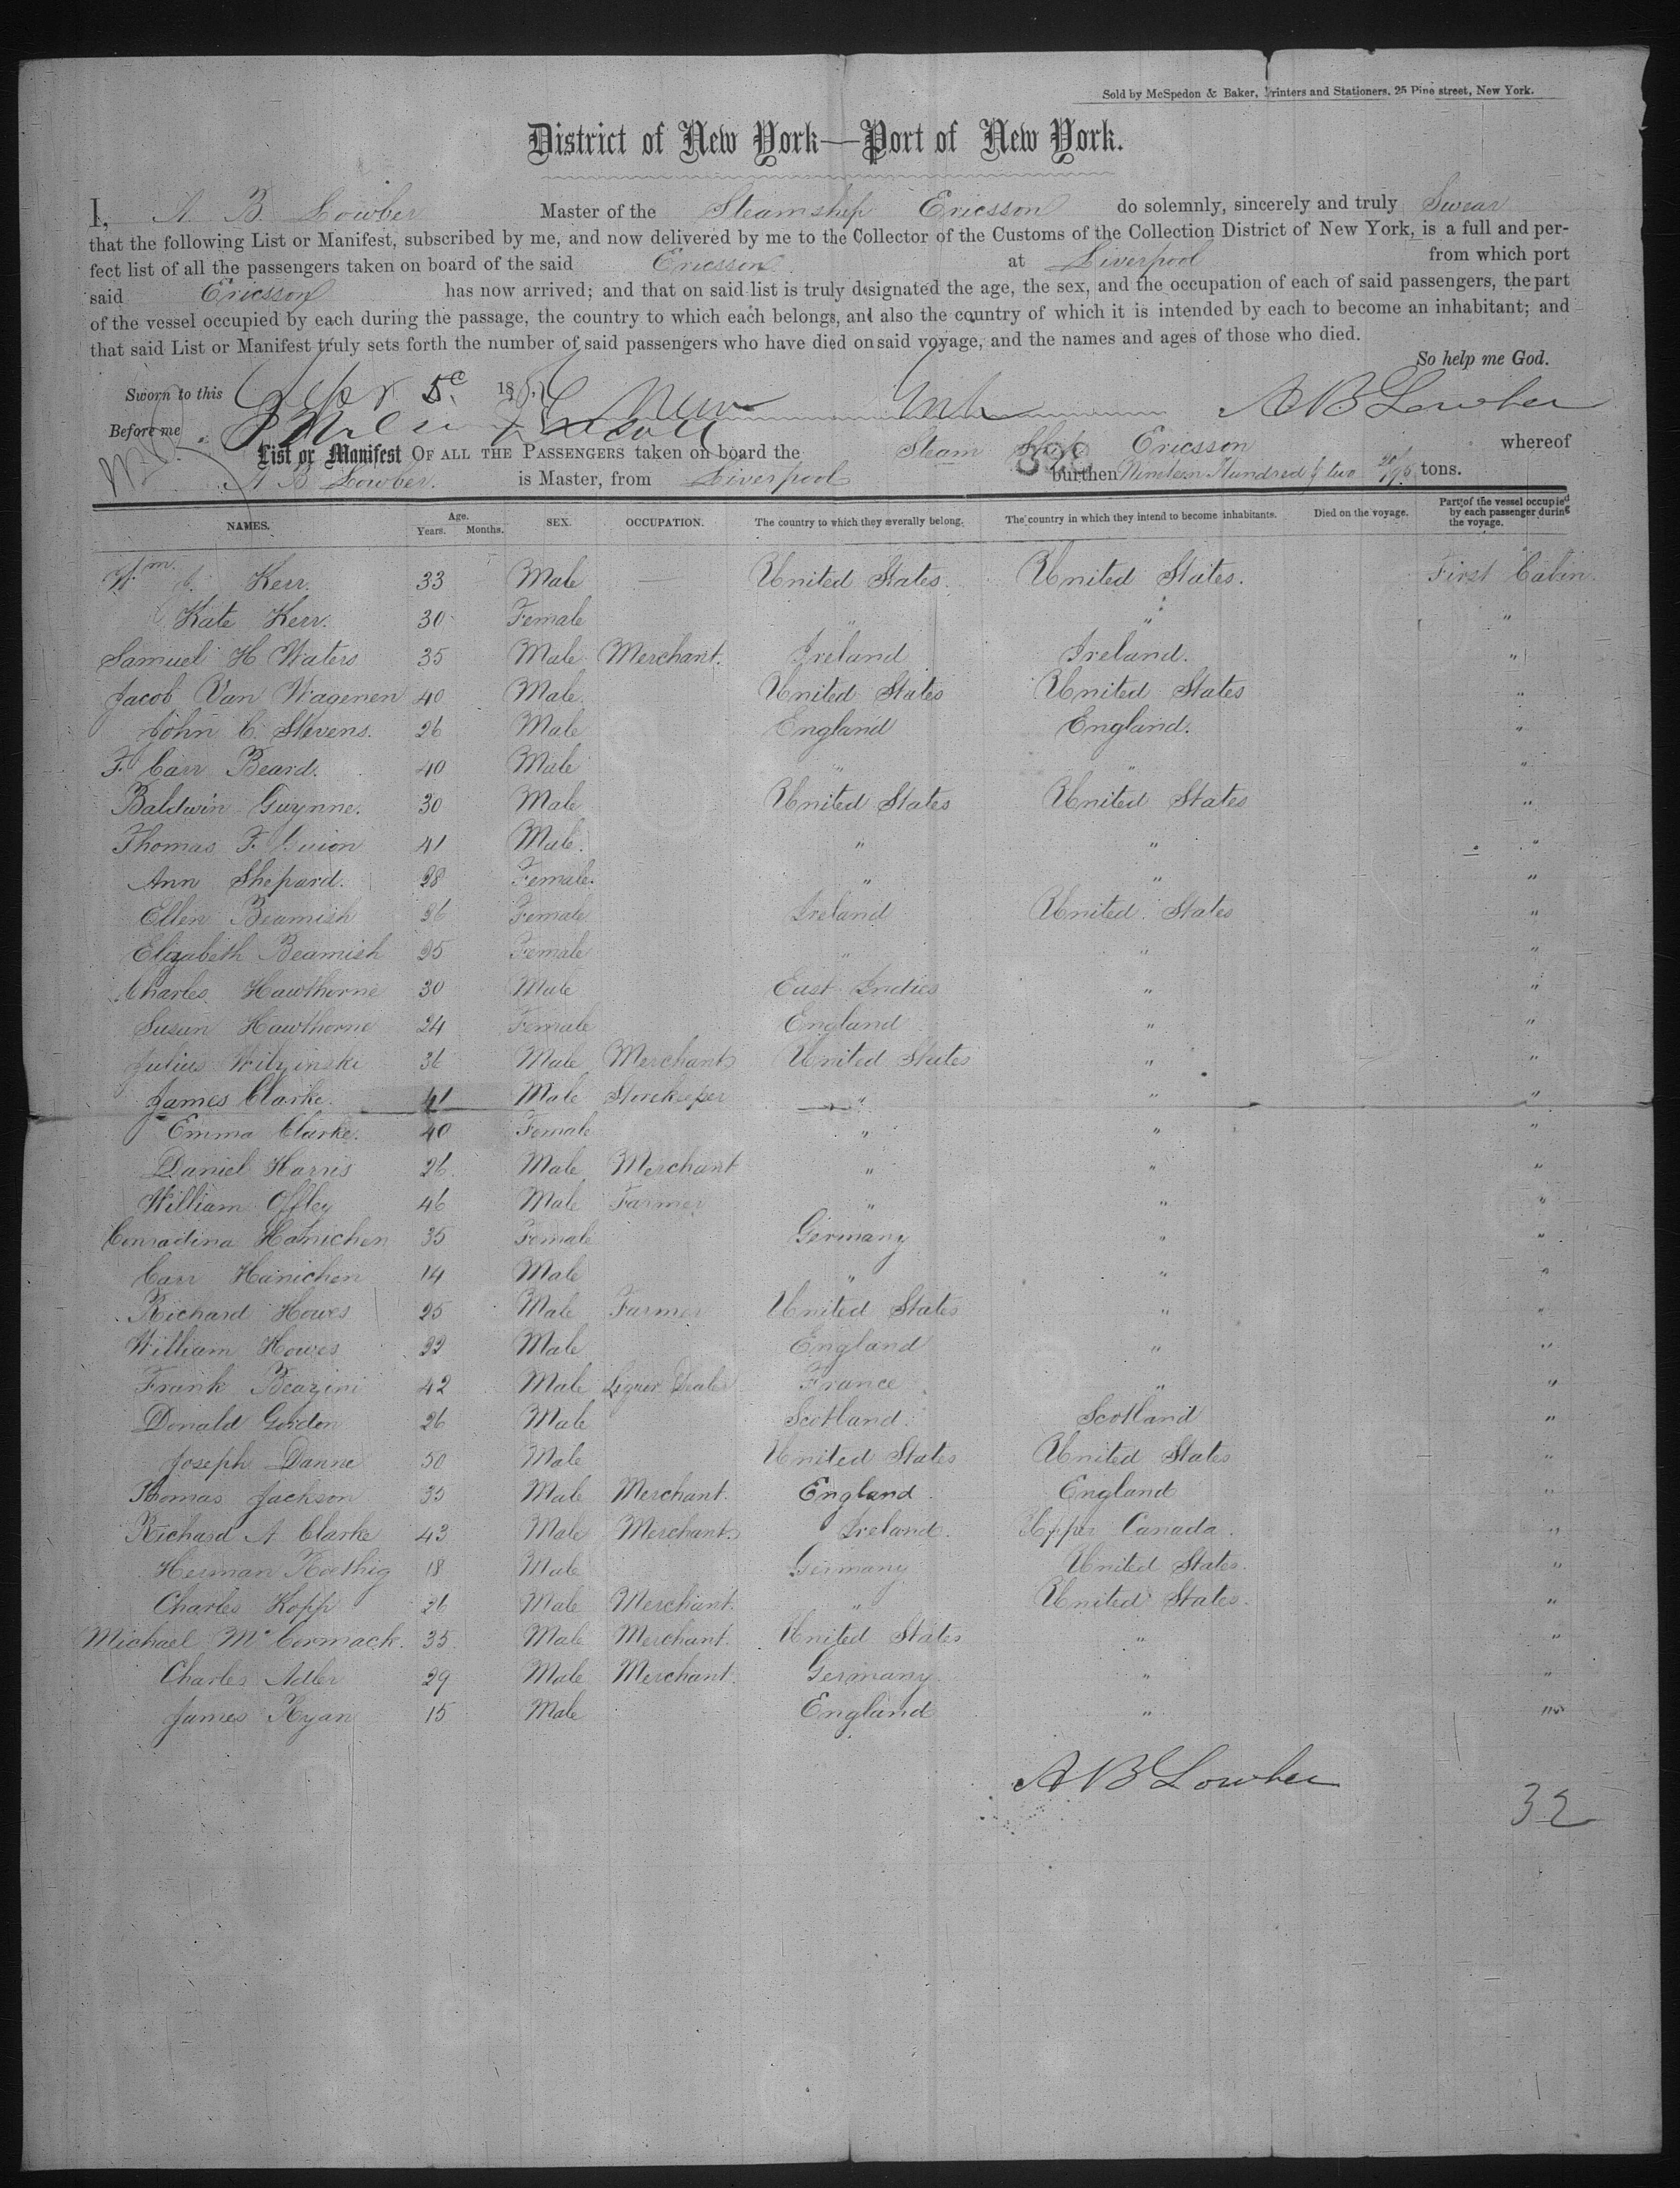 Sold by McSpedon & Baker, Printers and Stationers, 25 Pine street, New York.
District of New York—Port of New York.
I, A B Lowber Master of the Steamship Ericsson do solemnly, sincerely and truly Swear
that the following List or Manifest, subscribed by me, and now delivered by me to the Collector of the Customs of the Collection District of New York, is a full and per-
fect list of all the passengers taken on board of the said Ericsson at Liverpool from which port
said Ericsson has now arrived; and that on said list is truly designated the age, the sex, and the occupation of each of said passengers, the part
of the vessel occupied by each during the passage, the country to which each belongs, and also the country of which it is intended by each to become an inhabitant; and
that said List or Manifest truly sets forth the number of said passengers who have died on said voyage, and the names and ages of those who died.
So help me God.
Sworn to this Sept 5 18 A B Lowber
Before me
List or Manifest OF ALL THE PASSENGERS taken on board the Steam Ship Ericsson whereof
A B Lowber. is Master, from Liverpool burthen Nineteen Hundred & two tons.
NAMES. Age. Years. Months. SEX. OCCUPATION. The country to which they severally belong. The country in which they intend to become inhabitants. Died on the voyage. Part of the vessel occupied by each passenger during the voyage.
Wm. Kerr. 33 Male — United States. United States. First Cabin.
Kate Kerr. 30 Female " " "
Samuel H Waters 35 Male Merchant. Ireland Ireland. "
Jacob Van Wagenen 40 Male. United States United States "
John C. Stevens. 26 Male England England. "
F. Carr Beard. 40 Male " " "
Baldwin Gwynne. 30 Male United States United States "
Thomas F. Guion 41 Male. " " "
Ann Shepard. 28 Female. " " "
Ellen Beamish 26 Female Ireland United States "
Elizabeth Beamish 25 Female " " "
Charles Hawthorne 30 Male East Indies " "
Susan Hawthorne 24 Female England " "
Julius Wilzinski 36 Male Merchant United States " "
James Clarke. 41 Male Storekeeper " " "
Emma Clarke. 40 Female " " "
Daniel Harris 26 Male Merchant " " "
William Offley 46 Male Farmer " " "
Conradina Hanichen 35 Female Germany " "
Carr Hanichen 14 Male " " "
Richard Howes 25 Male Farmer United States " "
William Howes 22 Male England " "
Frank Beazini 42 Male Liquor Dealer France " "
Donald Gordon 26 Male Scotland. Scotland "
Joseph Danne 50 Male United States United States "
Thomas Jackson 35 Male Merchant. England England "
Richard A Clarke 43 Male Merchant Ireland. Upper Canada. "
Herman Roethig 18 Male Germany United States. "
Charles Kopp 26 Male Merchant. " United States. "
Michael Mc Cormack. 35 Male Merchant. United States " "
Charles Adler 29 Male Merchant. Germany " "
James Ryan 15 Male England " "
A B Lowber
32